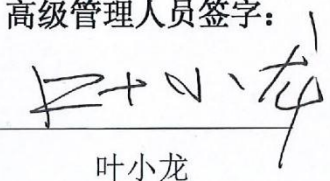 高级管理人员签字：
叶小龙
叶小龙